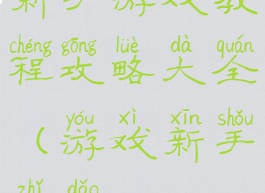 新手游戏教
chéng gōng lüè dà quán
程攻略大全
yóu xì xīn shǒu
（游戏新手
zhǐ dǎo